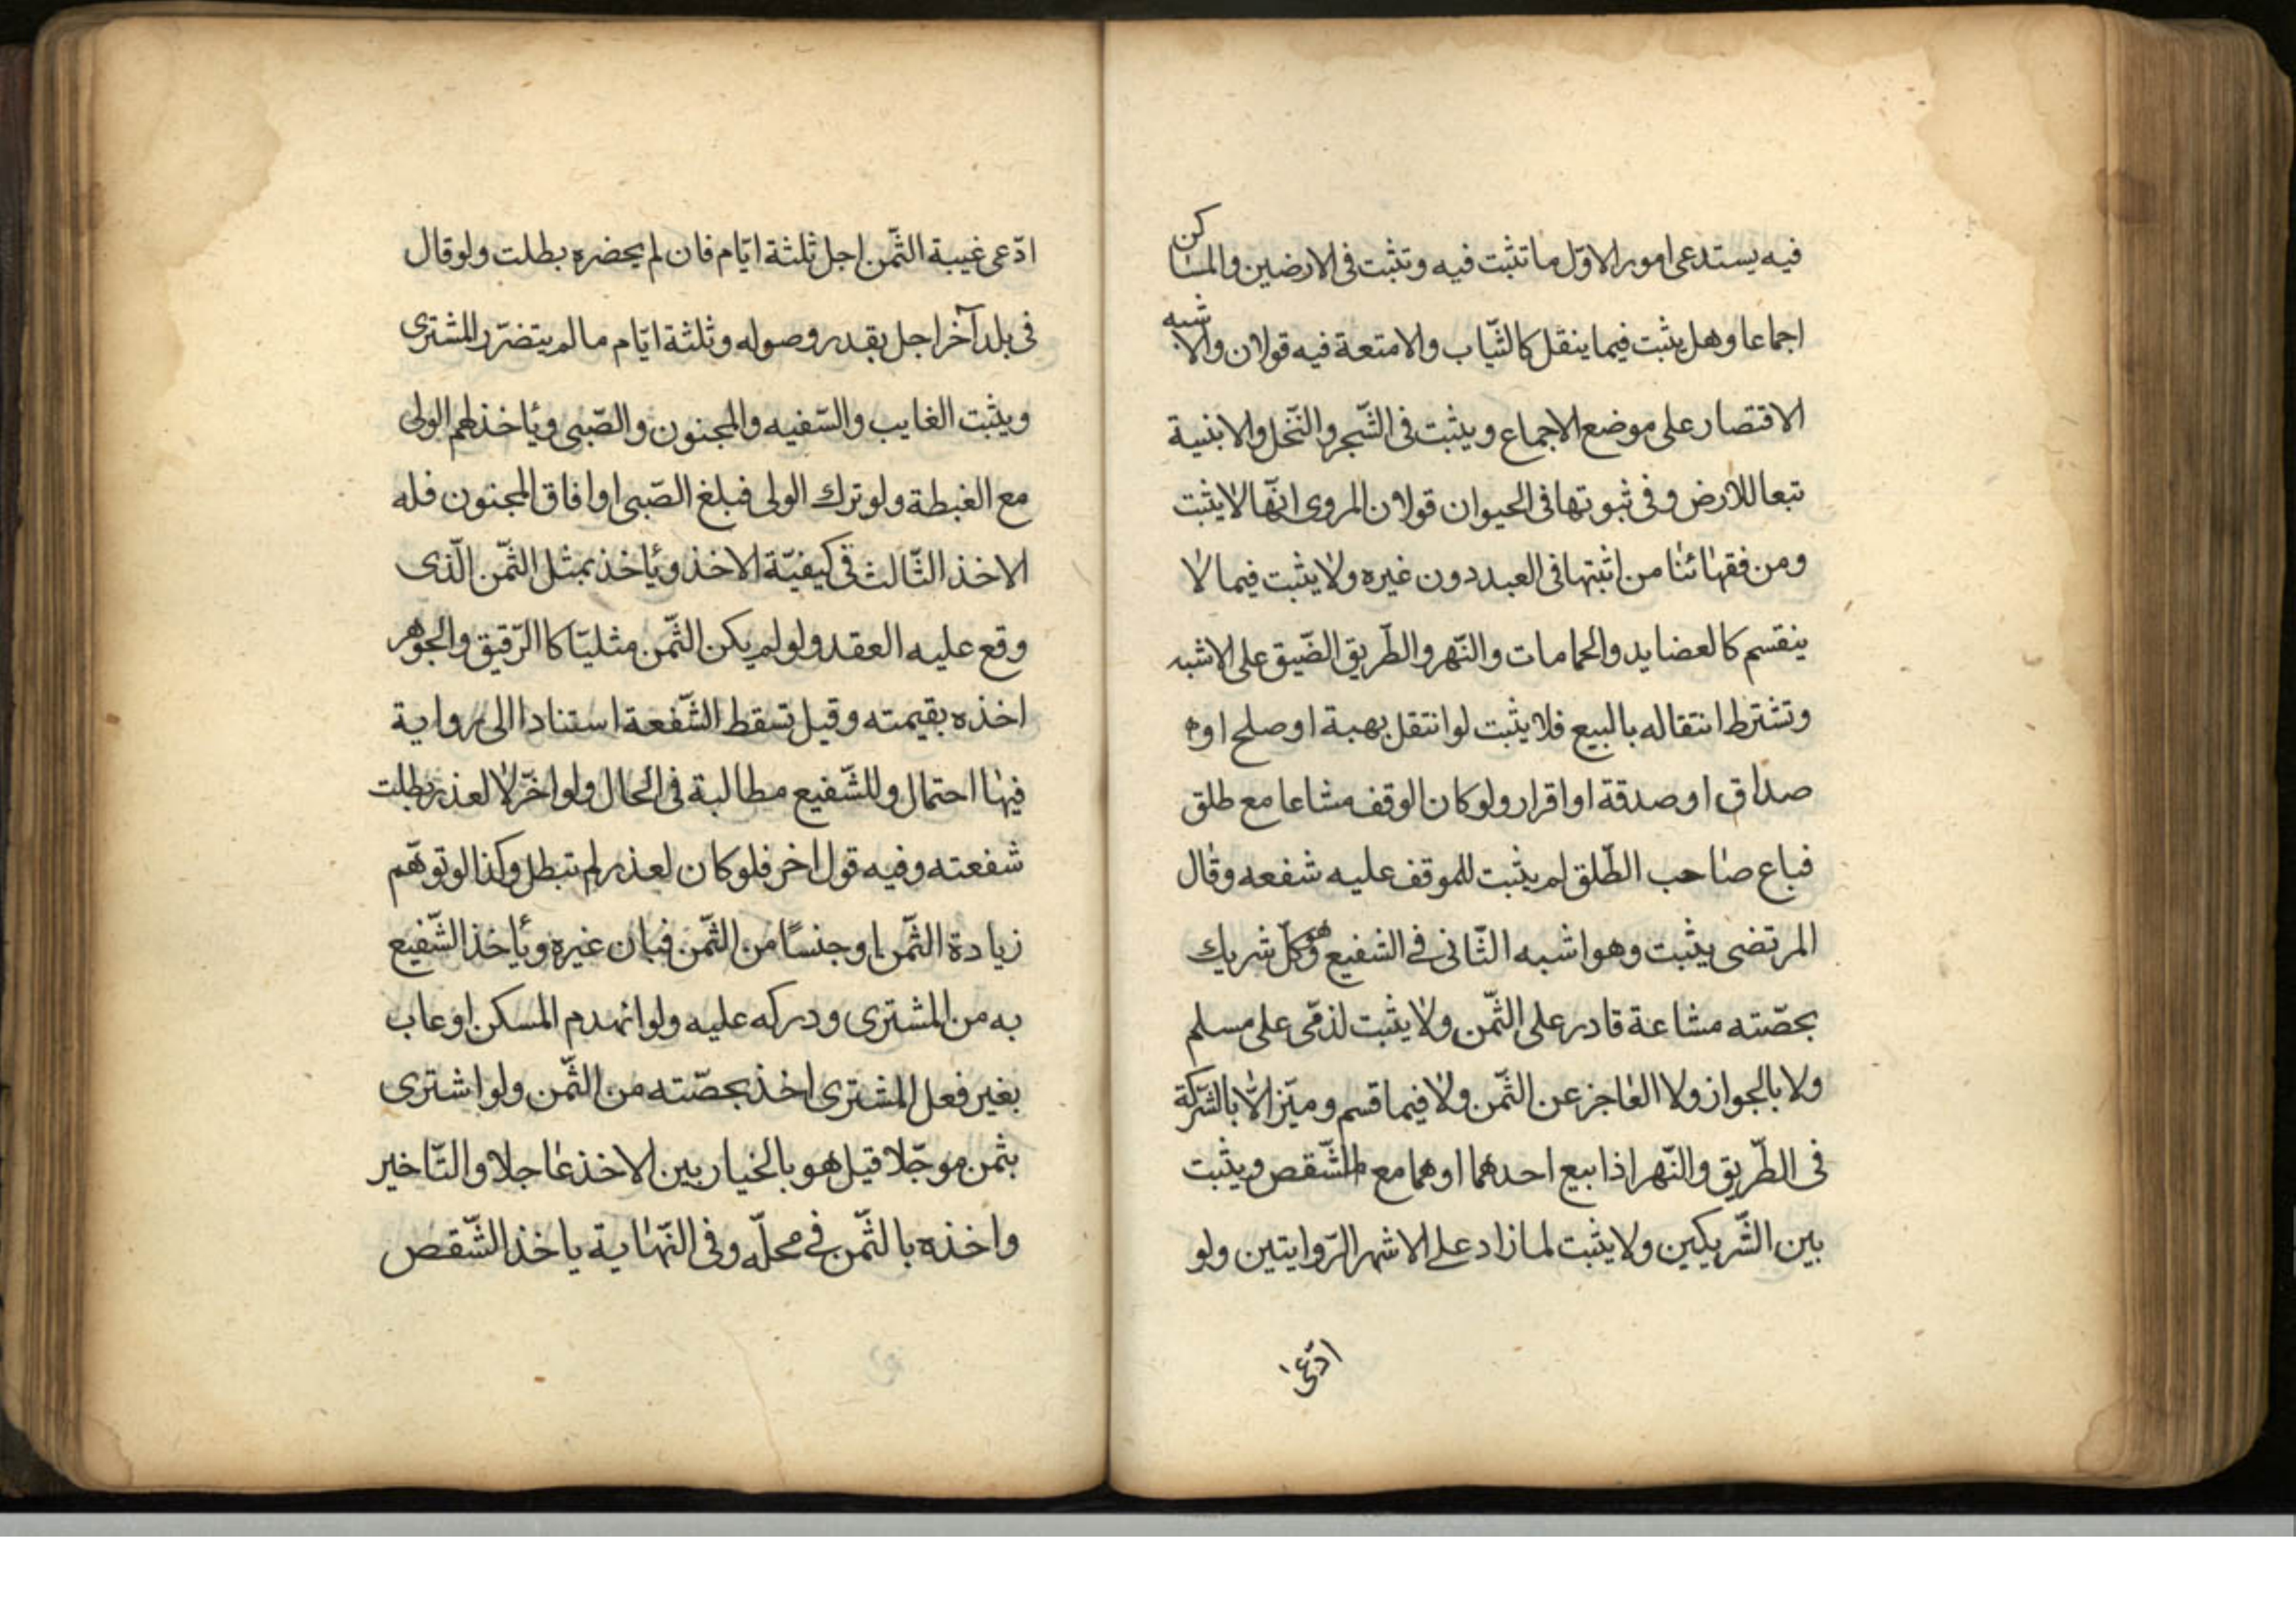 فيه يستدعى امورا الاوّل ما تثبت فيه وتثبت فى الارضين والمساكن
اجماعا وهل يثبت فيما ينقل كالثّياب والامتعة فيه قولان والاشبه
الاقتصار على موضع الاجماع ويثبت فى الشّجر والنّخل والابنية
تبعا للارض وفى ثبوتها فى الحيوان قولان المروى انّها لا يثبت
ومن فقهائنا من اثبتها فى العبد دون غيره ولا يثبت فيما لا
ينقسم كالعضايد والحمامات والنّهر والطّريق الضّيق على الاشبه
وتشترط انتقاله بالبيع فلا يثبت لو انتقل بهبة او صلح او
صداق او صدقة او اقرار ولو كان الوقف مشاعا مع طلق
فباع صاحب الطّلق لم يثبت للموقف عليه شفعه وقال
المرتضى يثبت وهو اشبه الثّانى فى الشفيع وهو كلّ شريك
بحصّته مشاعة قادر على الثّمن ولا يثبت لذمّى على مسلم
ولا بالجوار ولا العاجز عن الثّمن ولا فيما قسم وميّز الّا بالشّركة
فى الطّريق والنّهر اذا بيع احدهما او هما مع الشّقص ويثبت
بين الشّريكين ولا يثبت لما زاد على الاشهر الرّوايتين ولو
ادّعى
ادّعى غيبة الثّمن اجل ثلثة ايّام فان لم يحضره بطلت ولو قال
فى بلد آخر اجل بقدر وصوله وثلثة ايّام ما لم يتضرّر المشترى
ويثبت الغايب والسّفيه والمجنون والصّبى ويأخذ لهم الولى
مع الغبطة ولو ترك الولى فبلغ الصّبى او افاق المجنون فله
الاخذ الثّالث فى كيفيّة الاخذ ويأخذ بمثل الثّمن الّذى
وقع عليه العقد ولو لم يكن الثّمن مثليّا كاالرّقيق والجوهر
اخذه بقيمته وقيل تسقط الشّفعة استنادا الى رواية
فيها احتمال وللشّفيع مطالبة فى الحال ولو اخّر لا لعذر بطلت
شفعته وفيه قول اخر فلو كان لعذر لم تبطل وكذا لو توهّم
زيادة الثّمن او جنسًا من الثّمن فبان غيره ويأخذ الشّفيع
به من المشترى ودركه عليه ولو انهدم المسكن او عاب
بغير فعل المشترى اخذ بحصّته من الثّمن ولو اشترى
بثمن موجّلا قيل هو بالخيار بين الاخذ عاجلا والتّاخير
واخذه بالثّمن فى محلّه وفى النّهاية ياخذ الشّقص